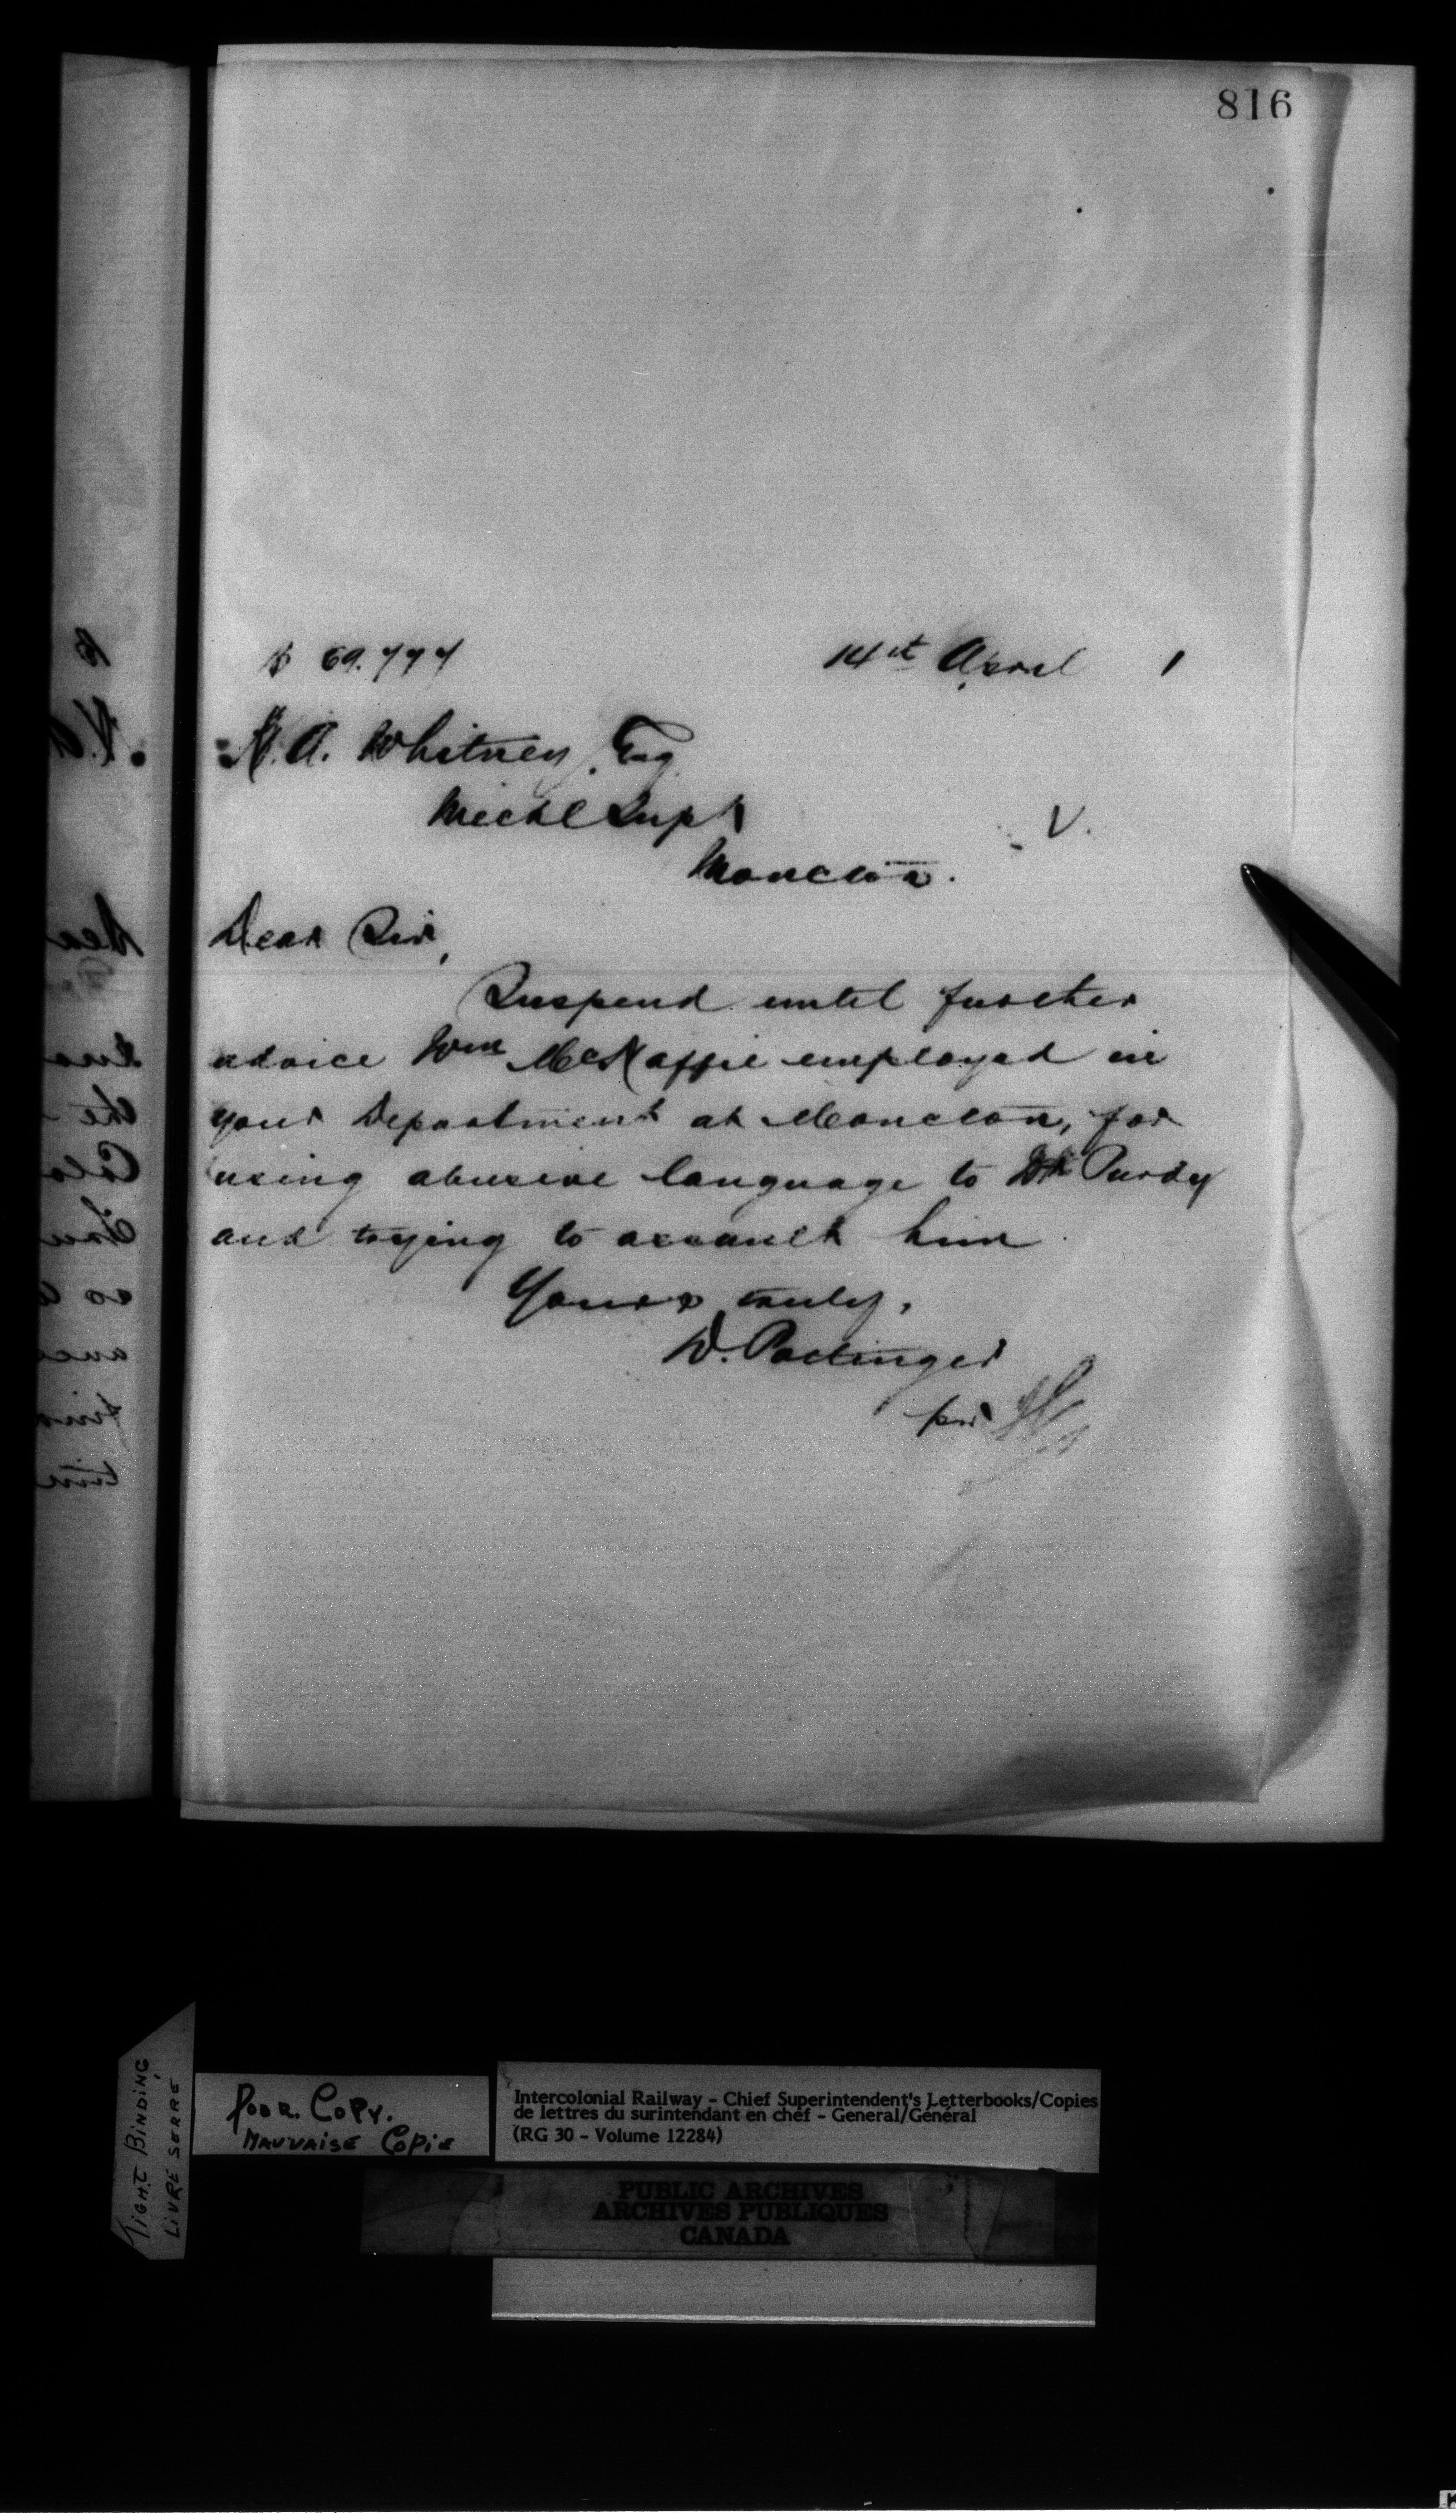 816
69.777
14st April 1
H.A. Whitney, Esq
Mechl Supt
V.
Moncton.
Dear Sir,
Suspend until further
advice Wm McHaffie employed in
your Department at Moncton, for
using abusive language to Dr Purdy
and trying to assault him.
Yours truly,
D. Pottinger
per
TIGHT BINDING
LIVRE SERRÉ
POOR. COPY.
MAUVAISE COPIE
Intercolonial Railway - Chief Superintendent's Letterbooks/Copies
de lettres du surintendant en chef - General/Général
(RG 30 - Volume 12284)
PUBLIC ARCHIVES
ARCHIVES PUBLIQUES
CANADA